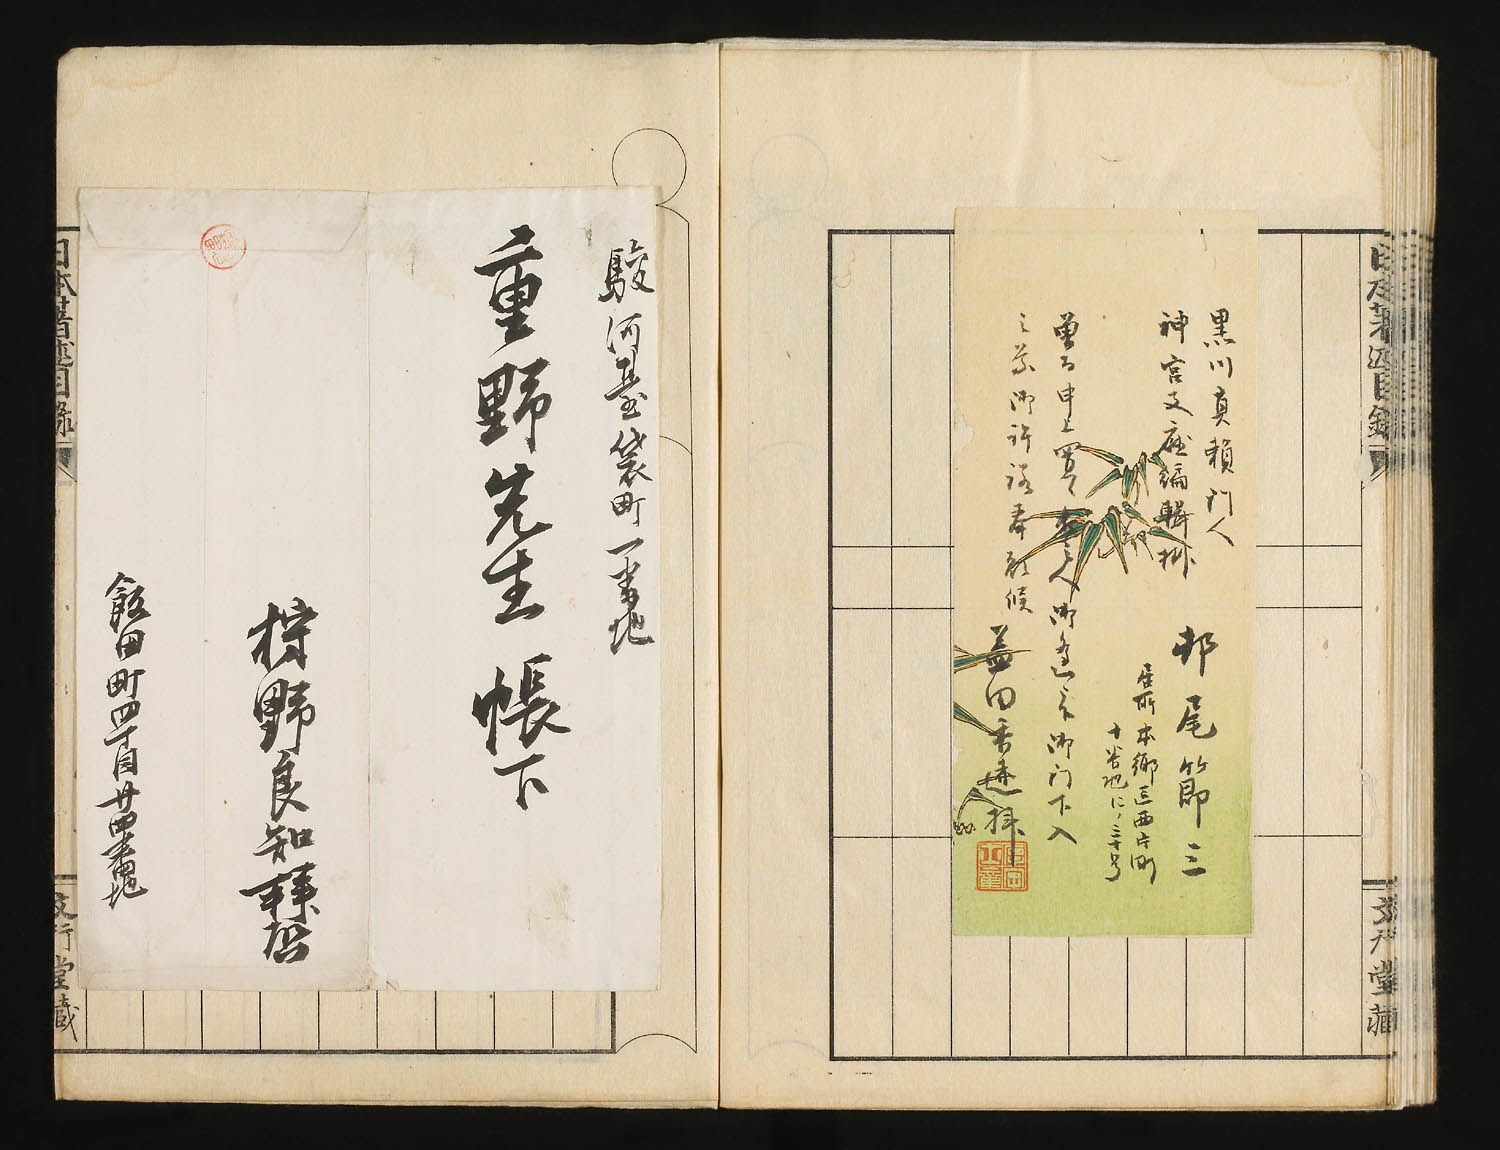 黒川真頼門人
神宮文庫編輯掛
邨尾節三
居所本郷区西片町
十番地に ノ三十号
曽而申上置候本人御逢之上御門下入
之義御許諾奉願候
益田香遠拝
日本著述目録
文行堂蔵
駿河臺袋町一番地
重野先生 帳下
狩野良知拝啓
飯田町四丁目廿四番地
日本著述目録
文行堂蔵